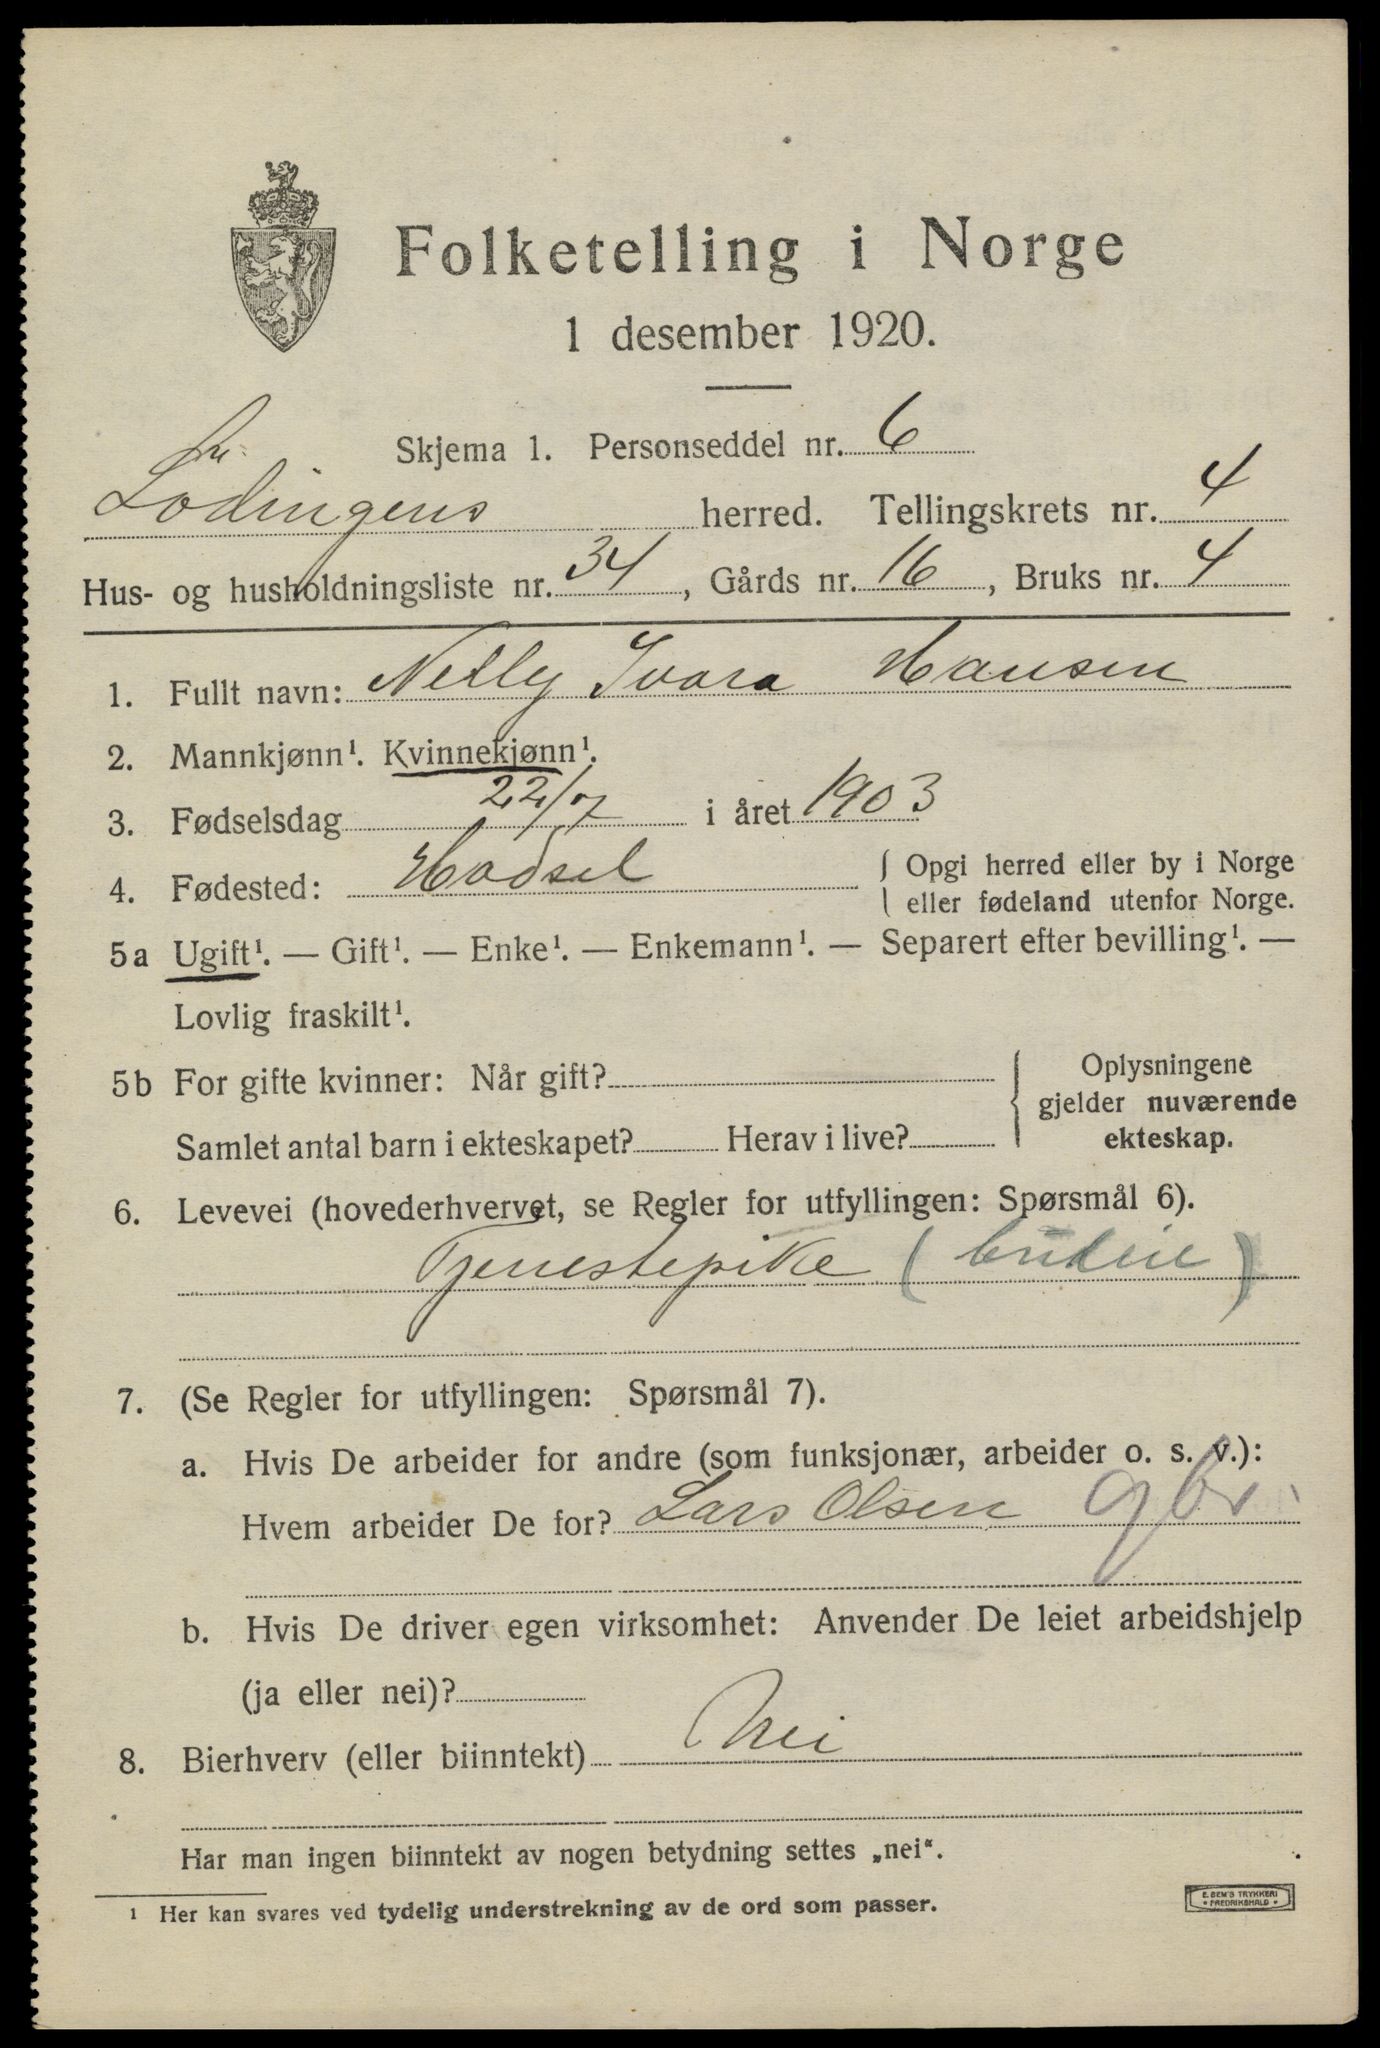 Folketelling i Norge
1 desember 1920.
Skjema 1. Personseddel nr. 6
Lodingens herred. Tellingskrets nr. 4
Hus- og husholdningsliste nr. 34, Gårds nr. 16, Bruks nr. 4
1. Fullt navn: Nelly Ivara Hansen
2. Mannkjønn¹. Kvinnekjønn¹.
3. Fødselsdag 22/7 i året 1903
4. Fødested: Hadsel { Opgi herred eller by i Norge
eller fødeland utenfor Norge.
5a Ugift¹. — Gift¹. — Enke¹. — Enkemann¹. — Separert efter bevilling¹. —
Lovlig fraskilt¹.
5b For gifte kvinner: Når gift? { Oplysningene
gjelder nuværende
Samlet antal barn i ekteskapet? Herav i live? ekteskap.
6. Levevei (hovederhvervet, se Regler for utfyllingen: Spørsmål 6).
Tjenestepike (budeie)
7. (Se Regler for utfyllingen: Spørsmål 7).
a. Hvis De arbeider for andre (som funksjonær, arbeider o. s. v.):
Hvem arbeider De for? Lars Olsen gbr.
b. Hvis De driver egen virksomhet: Anvender De leiet arbeidshjelp
(ja eller nei)?
8. Bierhverv (eller biinntekt) Nei
Har man ingen biinntekt av nogen betydning settes „nei“.
¹ Her kan svares ved tydelig understrekning av de ord som passer.
E. SEM'S TRYKKERI
FREDRIKSHALD